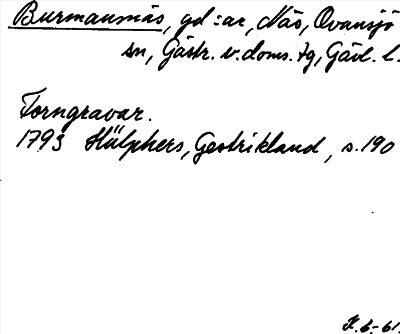 Burmansnäs, gd:ar, Näs, Ovansjö
sn, Gästr. v. doms. tg, Gävl. l.
Forngravar.
1793 Hülphers, Gestrikland, s. 190
K. 6. 61.